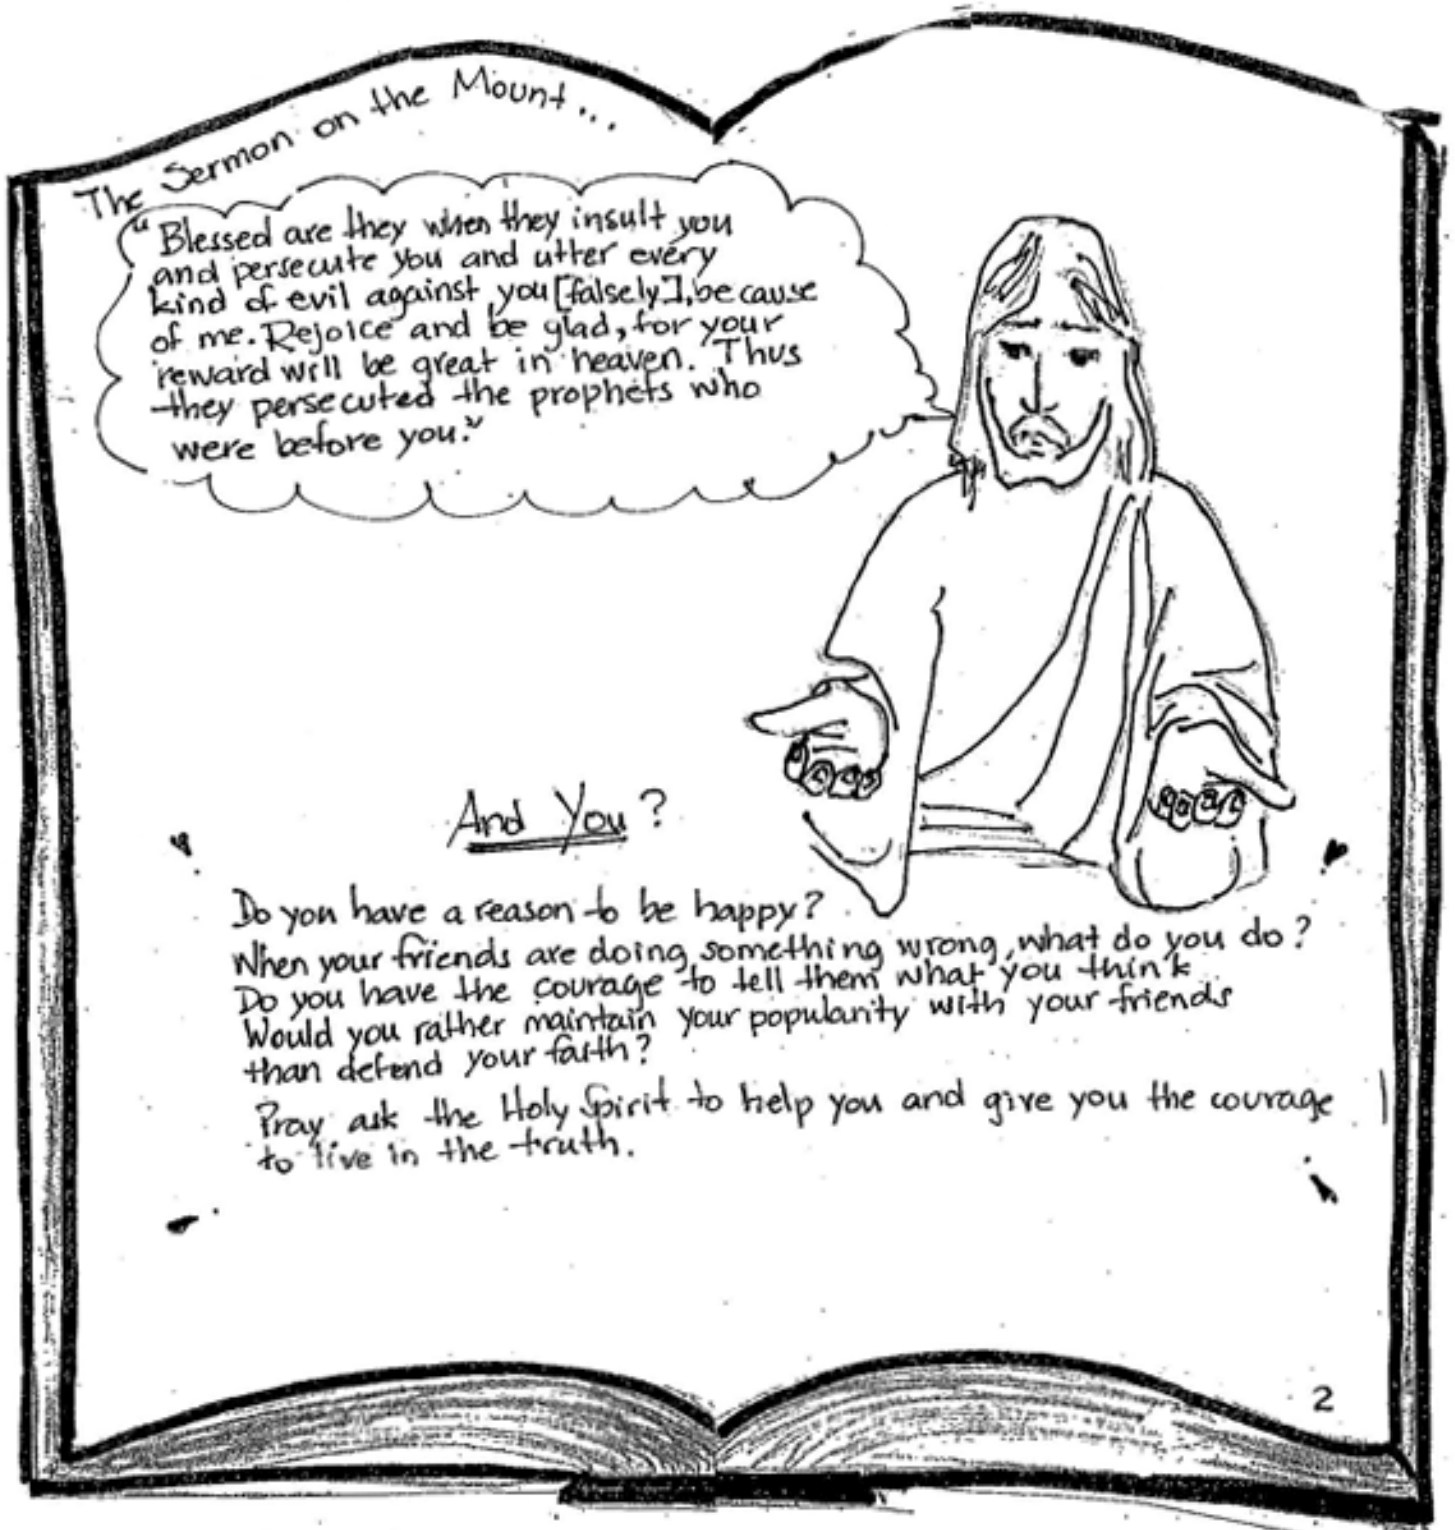 The Sermon on the Mount...
"Blessed are they when they insult you
and persecute you and utter every
kind of evil against you [falsely], because
of me. Rejoice and be glad, for your
reward will be great in heaven. Thus
they persecuted the prophets who
were before you."
And You?
Do you have a reason to be happy?
When your friends are doing something wrong, what do you do?
Do you have the courage to tell them what you think
Would you rather maintain your popularity with your friends
than defend your faith?
Pray ask the Holy Spirit to help you and give you the courage
to live in the truth.
2